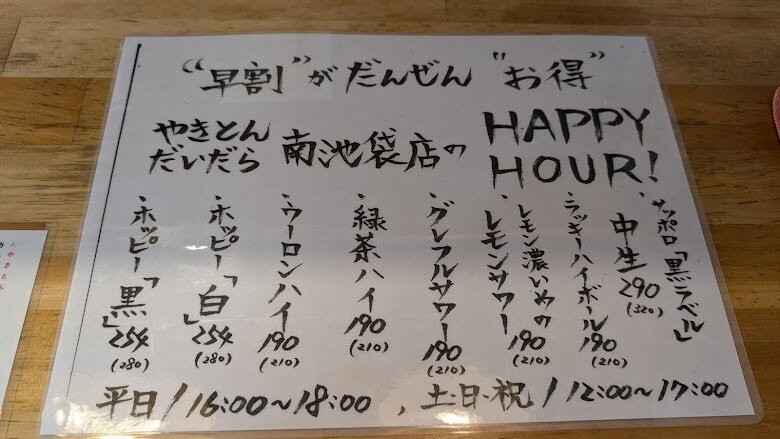 “早割”がだんぜん“お得”
やきとん
だいだら
南池袋店の
HAPPY
HOUR!
サッポロ「黒ラベル」
・中生 290
(320)
・ラッキーハイボール 190
(210)
・レモン濃いめの
レモンサワー 190
(210)
・グレフルサワー 190
(210)
・緑茶ハイ 190
(210)
・ウーロンハイ 190
(210)
・ホッピー「白」 254
(280)
・ホッピー「黒」 254
(280)
平日/16:00〜18:00 , 土・日・祝/12:00〜17:00